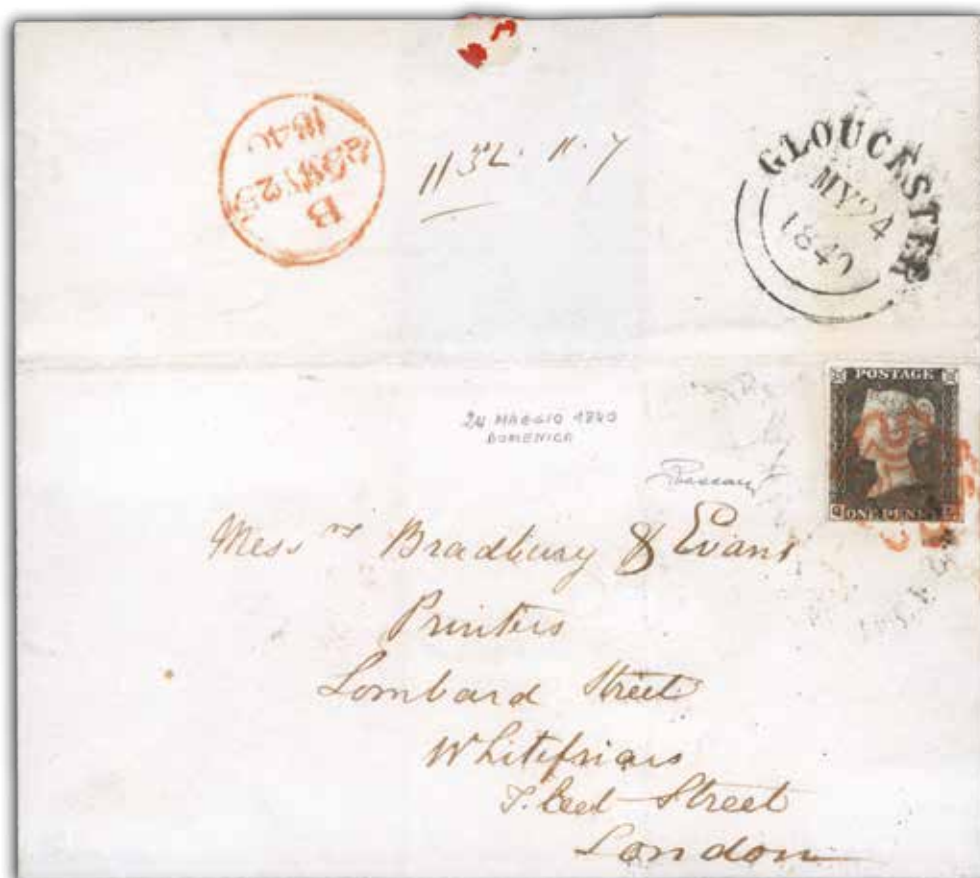 B
MY 25
1840
1132.
GLOUCESTER
MY 24
1840
POSTAGE
ONE PENNY
24 MAGGIO 1840
DOMENICA
Mess rs Bradbury & Evans
Printers
Lombard Street
Whitefriars
Fleet Street
London